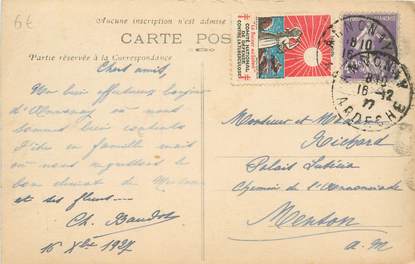 6€
Aucune inscription n'est admise
CARTE POS
Partie réservée à la Correspondance
Chers amis,
Un bien affectueux bonjour
d'Annonay où nous
sommes bien contents
d'être en famille mais
où nous regrettons le
bon climat de Menton
et des fleurs
Ch. Baudot
16 Xbre 1927
COMITÉ NATIONAL
DE DÉFENSE
CONTRE LA TUBERCULOSE
ANNONAY
16 -12
27
ARDECHE
Monsieur et
Richard
Palais Lutetia
Chemin de l'Annonciade
Menton
A. M